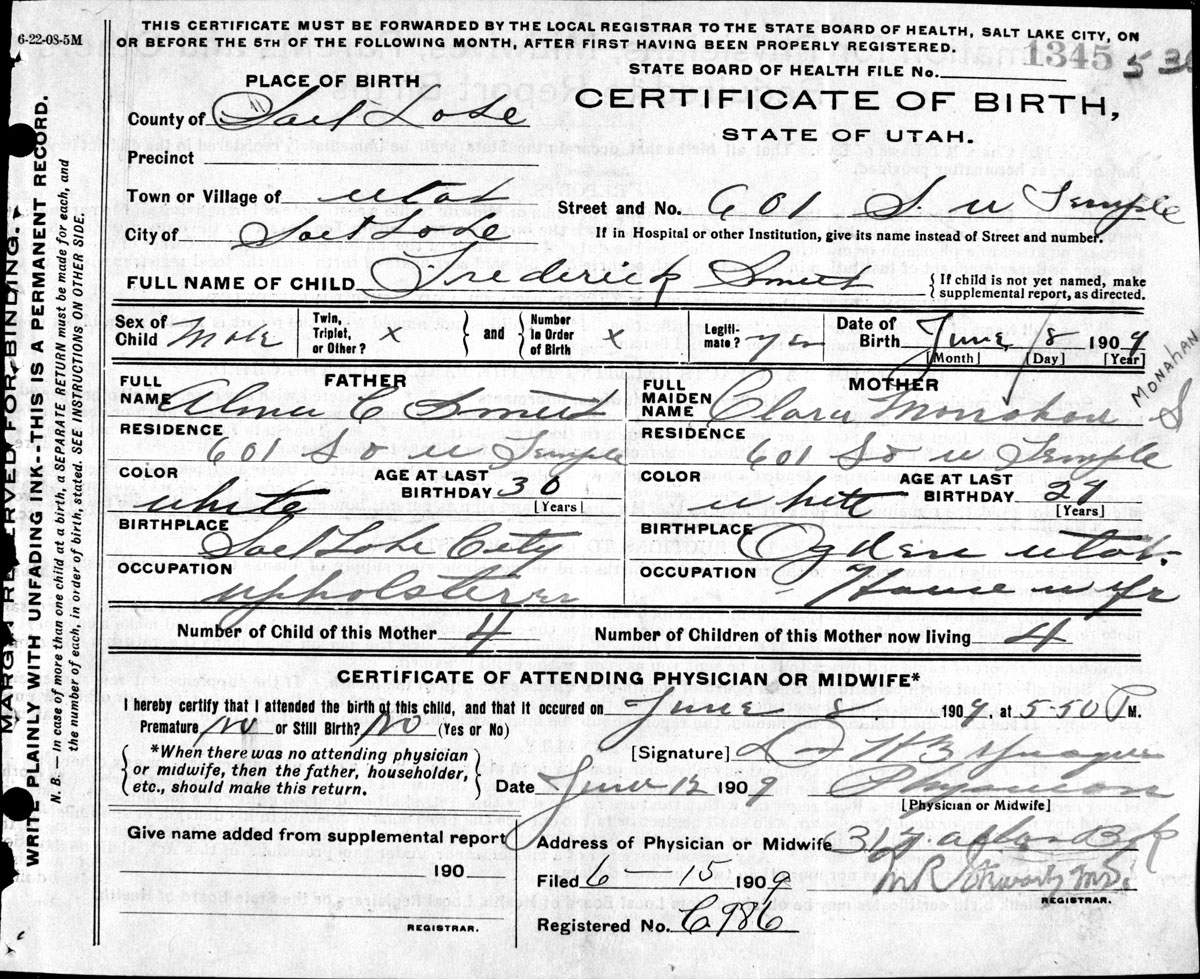 6-22-08-5M
THIS CERTIFICATE MUST BE FORWARDED BY THE LOCAL REGISTRAR TO THE STATE BOARD OF HEALTH, SALT LAKE CITY, ON
OR BEFORE THE 5TH OF THE FOLLOWING MONTH, AFTER FIRST HAVING BEEN PROPERLY REGISTERED.
STATE BOARD OF HEALTH FILE No. 1345
PLACE OF BIRTH
CERTIFICATE OF BIRTH,
STATE OF UTAH.
County of Salt Lake
Precinct
Town or Village of Utah
Street and No. 601 S W Temple
City of Salt Lake
If in Hospital or other Institution, give its name instead of Street and number.
FULL NAME OF CHILD Frederick
{If child is not yet named, make
supplemental report, as directed.
Sex of Child Male
Twin, Triplet, or Other? x
} and {
Number In Order of Birth x
Legiti- mate? yes
Date of Birth June 8 1909
[Month] [Day] [Year]
FATHER
FULL NAME Alma C
MOTHER
FULL MAIDEN NAME Clara Monahan
MONAHAN
RESIDENCE 601 So W Temple
RESIDENCE 601 So W Temple
COLOR White
AGE AT LAST BIRTHDAY 30
[Years]
COLOR White
AGE AT LAST BIRTHDAY
[Years]
BIRTHPLACE Salt Lake City
BIRTHPLACE Ogden Utah
OCCUPATION Upholsterer
OCCUPATION Housewife
Number of Child of this Mother 4
Number of Children of this Mother now living 4
CERTIFICATE OF ATTENDING PHYSICIAN OR MIDWIFE*
I hereby certify that I attended the birth of this child, and that it occured on June 8 1909, at 5-50 P M.
Premature No or Still Birth? No (Yes or No)
{*When there was no attending physician
or midwife, then the father, householder,
etc., should make this return.}
[Signature]
Date June 12 1909 Physician
[Physician or Midwife]
Give name added from supplemental report
190
REGISTRAR.
Address of Physician or Midwife
Filed 6 15 1909
REGISTRAR.
Registered No.
MARGIN RESERVED FOR BINDING.
WRITE PLAINLY WITH UNFADING INK--THIS IS A PERMANENT RECORD.
N. B. — In case of more than one child at a birth, a SEPARATE RETURN must be made for each, and
the number of each, in order of birth, stated. SEE INSTRUCTIONS ON OTHER SIDE.